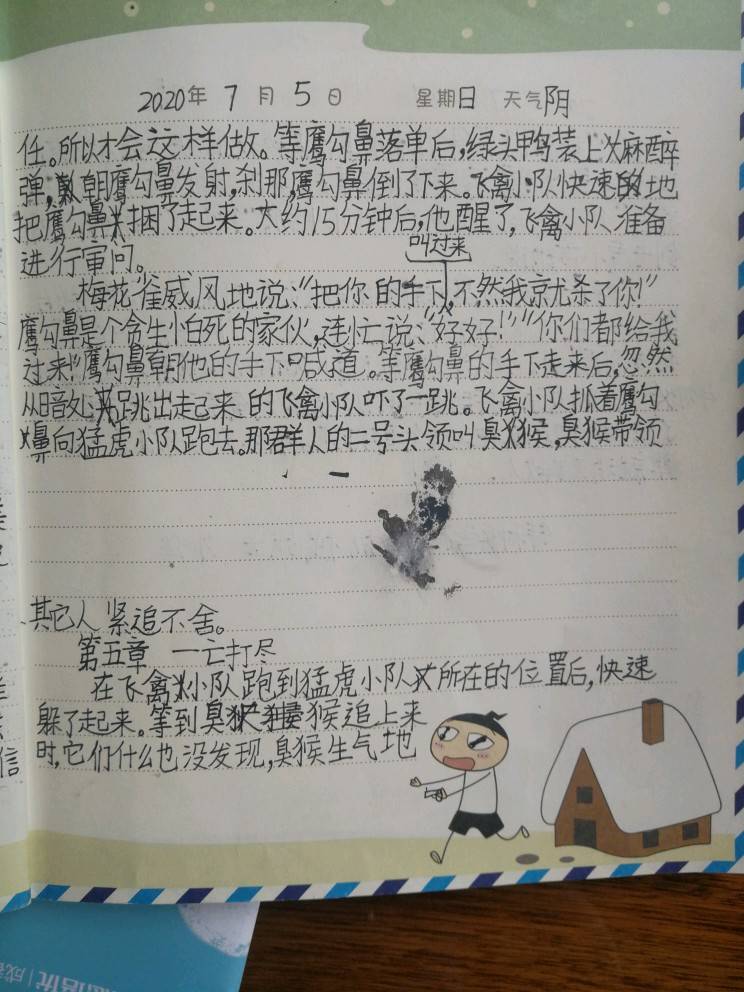 2020年 7月 5日 星期日 天气阴
任。所以才会这样做。等鹰勾鼻落单后,绿头鸭装上麻醉
弹,朝鹰勾鼻发射,刹那,鹰勾鼻倒了下来。飞禽小队快速的地
把鹰勾鼻捆了起来。大约15分钟后,他醒了,飞禽小队准备
进行审问。
叫过来
梅花雀威风地说:“把你的手下,不然我就杀了你!”
鹰勾鼻是个贪生怕死的家伙,连忙说:“好好!”“你们都给我
过来!”鹰勾鼻朝他的手下喊道。等鹰勾鼻的手下走来后,忽然
从暗处跳出走起来的飞禽小队吓了一跳。飞禽小队抓着鹰勾
鼻向猛虎小队跑去。那群人的二号头领叫臭猴,臭猴带领
其它人紧追不舍。
第五章 一亡打尽
在飞禽小队跑到猛虎小队所在的位置后,快速
躲了起来。等到臭猴追上来
时,它们什么也没发现,臭猴生气地
信